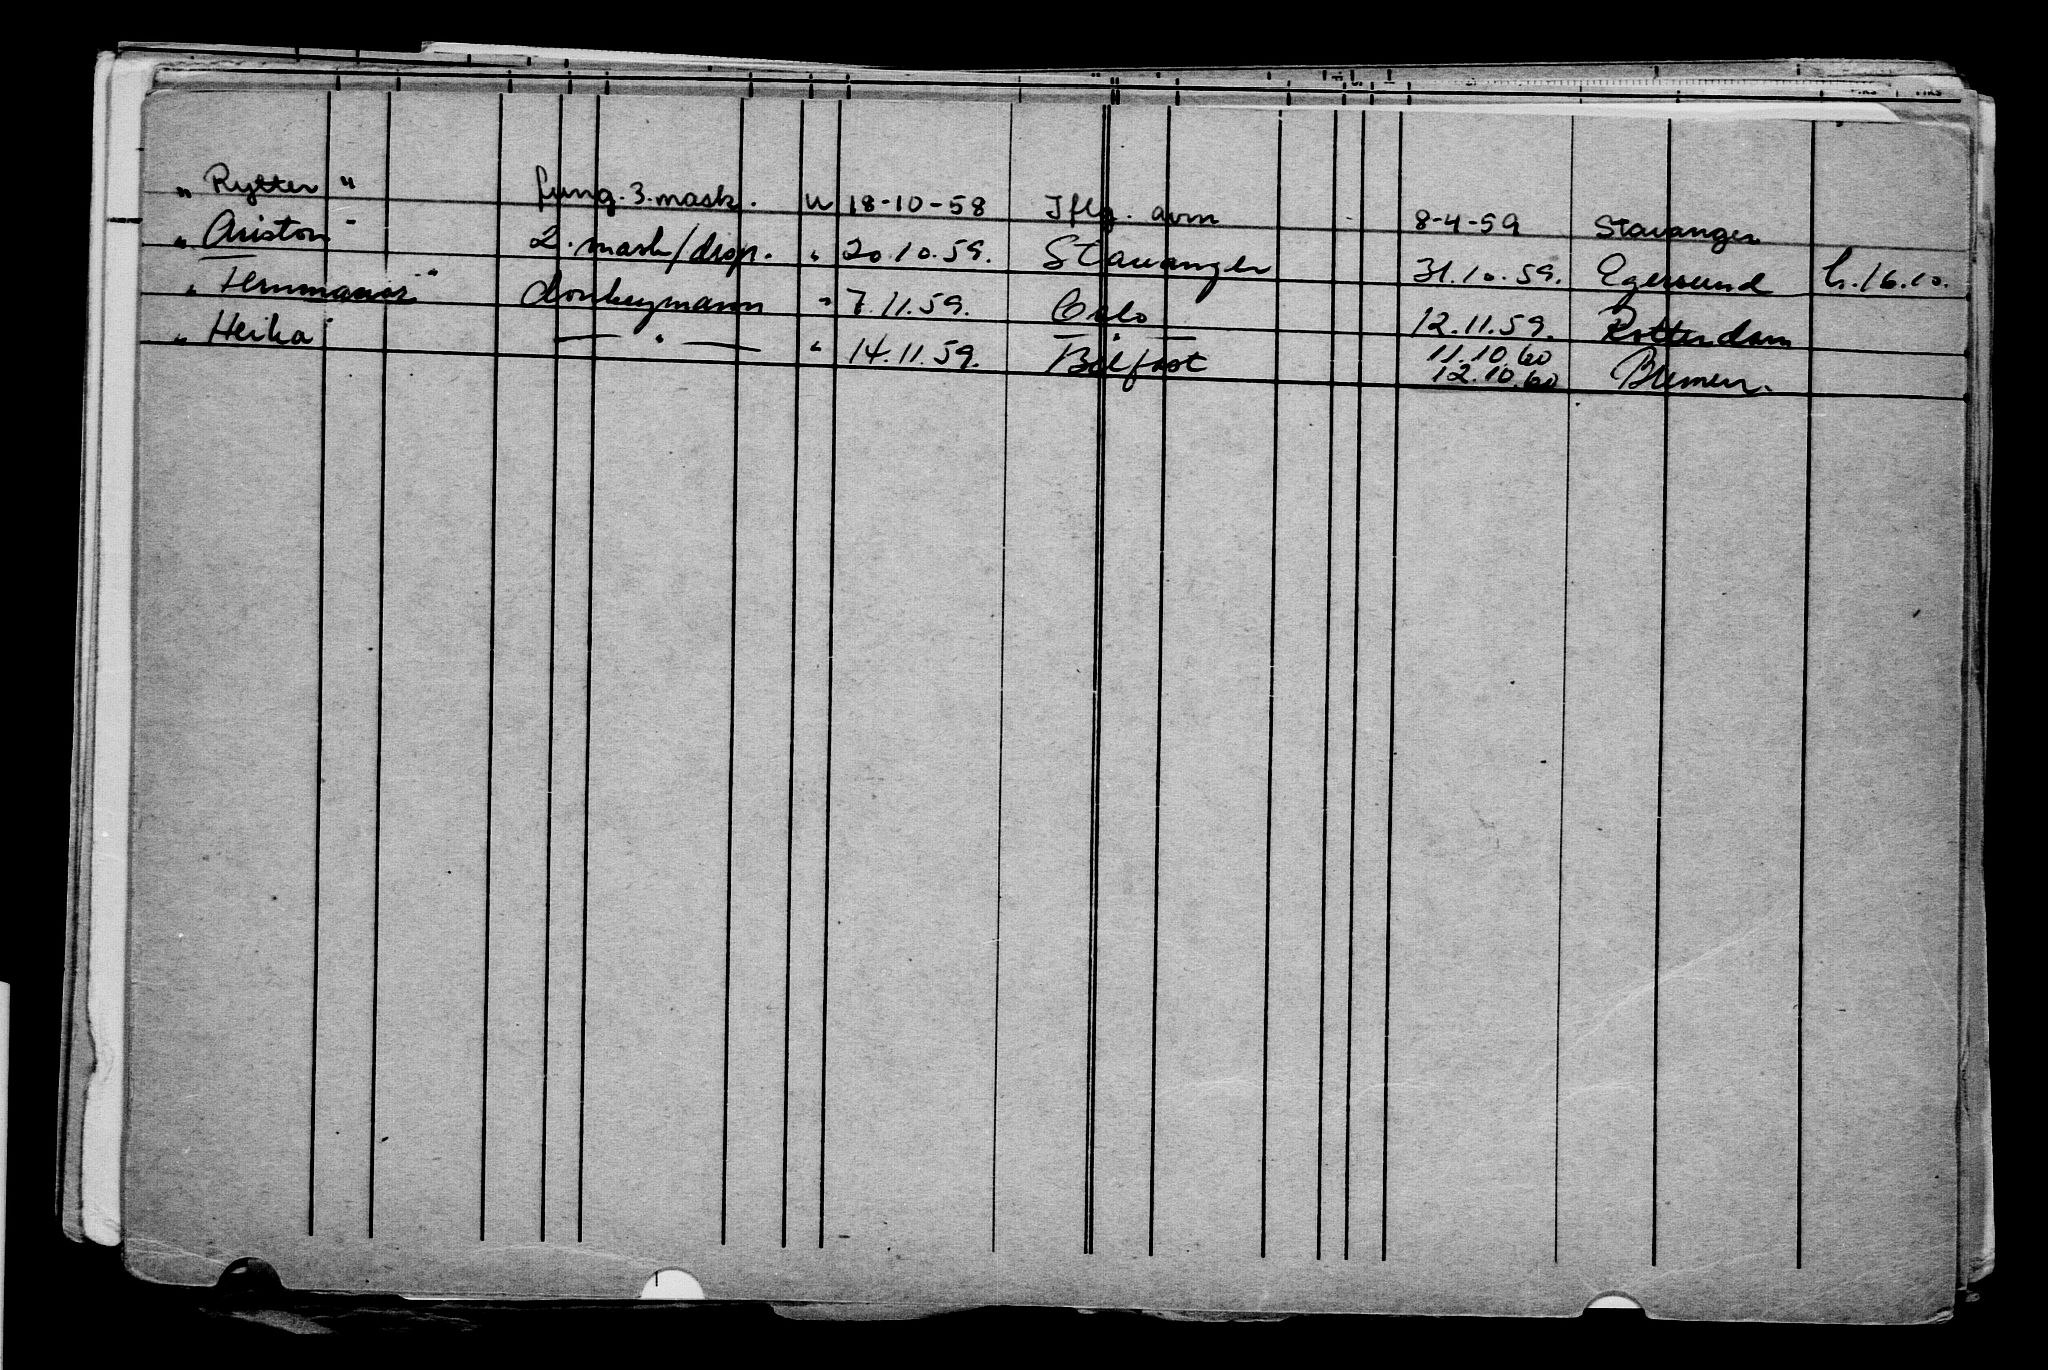 „ Rytter " fung. 3. mask. u 18-10-58 Iflg. avm 8-4-59 Stavanger
„ Ariston " 2. mask/disp. " 20.10.59. Stavanger 31.10.59. Egersund h.16.10.
„ " donkeymann " 7.11.59. Oslo 12.11.59. Rotterdam
„ Heika " — " — " 14.11.59. Belfast 11.10.60
12.10.60 Bremen.